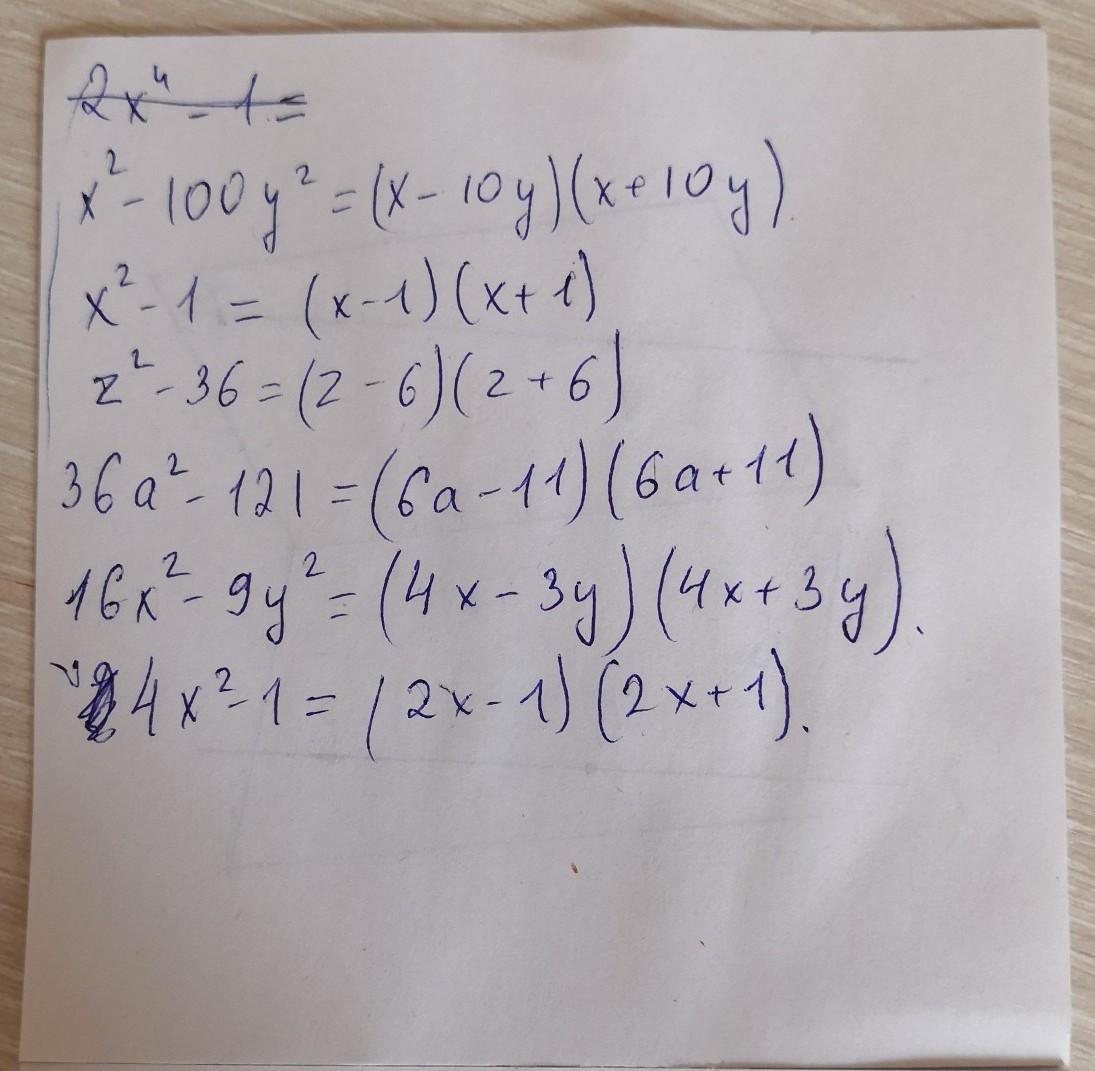 2x⁴ - 1 =
x² - 100y² = (x - 10y)(x + 10y).
x² - 1 = (x - 1)(x + 1)
z² - 36 = (z - 6)(z + 6)
36a² - 121 = (6a - 11)(6a + 11)
16x² - 9y² = (4x - 3y)(4x + 3y).
4x² - 1 = (2x - 1)(2x + 1).